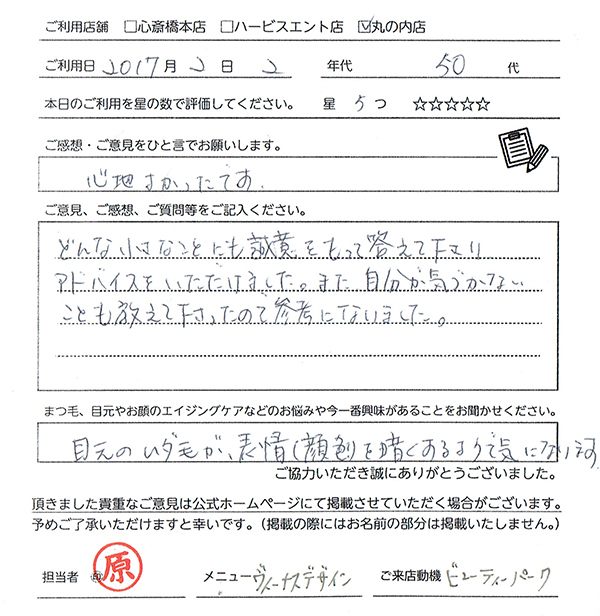 ご利用店舗 □心斎橋本店 □ハービスエント店 ☑丸の内店
ご利用日 2017月 2 日 2 年代 50 代
本日のご利用を星の数で評価してください。 星 5 つ ☆☆☆☆☆
ご感想・ご意見をひと言でお願いします。
心地よかったです。
ご意見、ご感想、ご質問等をご記入ください。
どんな小さなことにも誠意をもって答えて下さり
アドバイスをいただけました。また 自分が気づかない
ことも教えて下さったので参考になりました。
まつ毛、目元やお顔のエイジングケアなどのお悩みや今一番興味があることをお聞かせください。
目元のムダ毛が、表情(顔色)を暗くあるようで気になります
ご協力いただき誠にありがとうございました。
頂きました貴重なご意見は公式ホームページにて掲載させていただく場合がございます。
予めご了承いただけますと幸いです。（掲載の際にはお名前の部分は掲載いたしません。）
担当者 ㊞ 原 メニュー ヴィーナスデザイン ご来店動機 ビューティーパーク